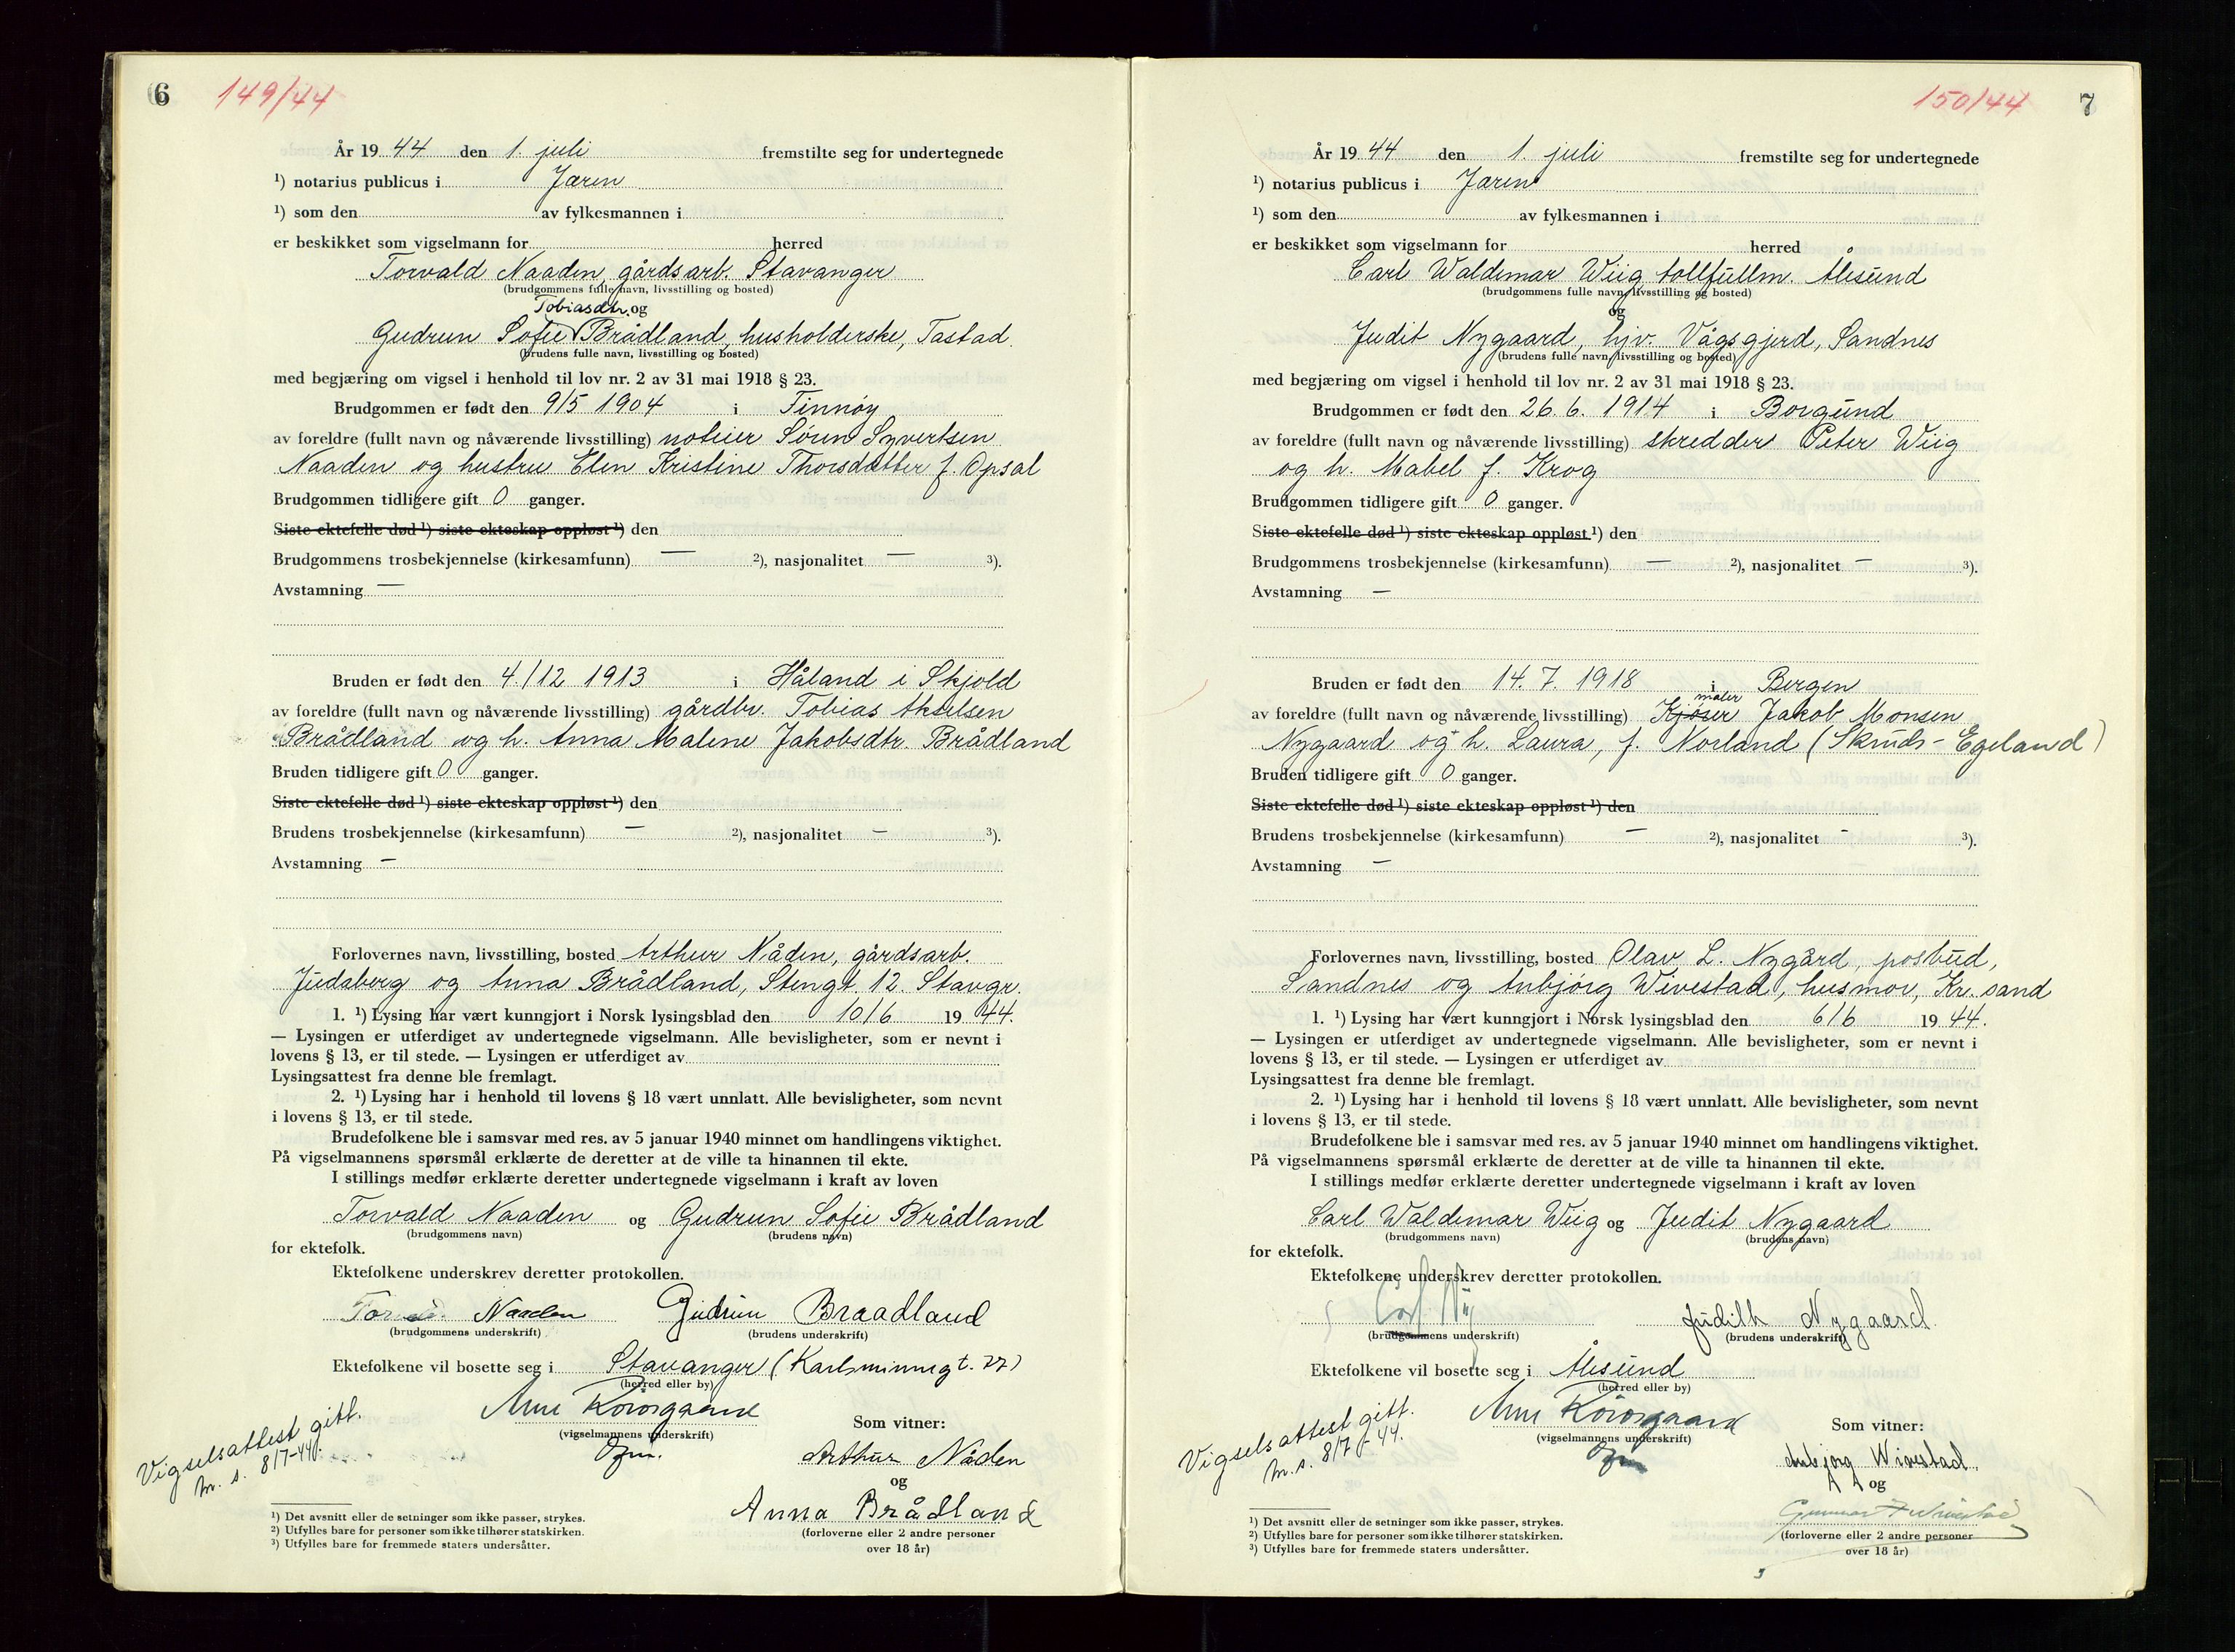 6
149/44
År 1944 den 1. juli fremstilte seg for undertegnede
¹) notarius publicus i Jæren
¹) som den av fylkesmannen i
er beskikket som vigselmann for herred
Torvald Naaden, gårdsarb. Stavanger
(brudgommens fulle navn, livsstilling og bosted)
Tobiasdtr. og
Gudrun Sofie Brådland, husholderske, Tastad
(brudens fulle navn, livsstilling og bosted)
med begjæring om vigsel i henhold til lov nr. 2 av 31 mai 1918 § 23.
Brudgommen er født den 9/5 1904 i Finnøy
av foreldre (fullt navn og nåværende livsstilling) notbier Søren Syvertsen
Naaden og hustru Elen Kristine Thorsdatter f. Opsal
Brudgommen tidligere gift 0 ganger.
Siste ektefelle død ¹) siste ekteskap oppløst ¹) den
Brudgommens trosbekjennelse (kirkesamfunn) — ²), nasjonalitet — ³).
Avstamning —
Bruden er født den 4./12 1913 i Håland i Skjold
av foreldre (fullt navn og nåværende livsstilling) gårdbr. Tobias Akselsen
Brådland og h. Anna Malene Jakobsdtr. Brådland
Bruden tidligere gift 0 ganger.
Siste ektefelle død ¹) siste ekteskap oppløst ¹) den
Brudens trosbekjennelse (kirkesamfunn) — ²), nasjonalitet — ³).
Avstamning —
Forlovernes navn, livsstilling, bosted Arthur Nåden, gårdsarb.
Judaberg og Anna Brådland, Stengt. 12. Stavgr.
1. ¹) Lysing har vært kunngjort i Norsk lysingsblad den 10/6 1944.
— Lysingen er utferdiget av undertegnede vigselmann. Alle bevisligheter, som er nevnt i
lovens § 13, er til stede. — Lysingen er utferdiget av
Lysingsattest fra denne ble fremlagt.
2. ¹) Lysing har i henhold til lovens § 18 vært unnlatt. Alle bevisligheter, som nevnt
i lovens § 13, er til stede.
Brudefolkene ble i samsvar med res. av 5 januar 1940 minnet om handlingens viktighet.
På vigselmannens spørsmål erklærte de deretter at de ville ta hinannen til ekte.
I stillings medfør erklærte deretter undertegnede vigselmann i kraft av loven
Torvald Naaden og Gudrun Sofie Brådland
(brudgommens navn) (brudens navn)
for ektefolk.
Ektefolkene underskrev deretter protokollen.
Naaden Gudrun Braadland
(brudgommens underskrift) (brudens underskrift)
Ektefolkene vil bosette seg i Stavanger (Karlsminnegt. 77)
(herred eller by)
Vigselsattest gitt.
m. s. 8/7-44.
(vigselmannens underskrift)
Som vitner:
Arthur Nåden
og
Anna Brådland
(forloverne eller 2 andre personer
over 18 år)
¹) Det avsnitt eller de setninger som ikke passer, strykes.
²) Utfylles bare for personer som ikke tilhører statskirken.
³) Utfylles bare for fremmede staters undersåtter.
150/44 7
År 1944 den 1. juli fremstilte seg for undertegnede
¹) notarius publicus i Jæren
¹) som den av fylkesmannen i
er beskikket som vigselmann for herred
Carl Waldemar Wiig tollfullm. Ålesund
(brudgommens fulle navn, livsstilling og bosted)
og
Judit Nygaard, hjv. Vågsgjerd, Sandnes
(brudens fulle navn, livsstilling og bosted)
med begjæring om vigsel i henhold til lov nr. 2 av 31 mai 1918 § 23.
Brudgommen er født den 26. 6. 1914 i Borgund
av foreldre (fullt navn og nåværende livsstilling) skredder Peter Wiig
og h. Mabel f. Krog
Brudgommen tidligere gift 0 ganger.
Siste ektefelle død ¹) siste ekteskap oppløst ¹) den
Brudgommens trosbekjennelse (kirkesamfunn) — ²), nasjonalitet — ³).
Avstamning —
Bruden er født den 14. 7. 1918 i Bergen
maler
av foreldre (fullt navn og nåværende livsstilling) Kjøser Jakob Monsen
Nygaard og h. Laura, f. Norland (Skruds-Egeland)
Bruden tidligere gift 0 ganger.
Siste ektefelle død ¹) siste ekteskap oppløst ¹) den
Brudens trosbekjennelse (kirkesamfunn) — ²), nasjonalitet - ³).
Avstamning —
Forlovernes navn, livsstilling, bosted Olav L. Nygård, postbud,
Sandnes og Anbjørg Wivestad, husmor, Kr. sand
1. ¹) Lysing har vært kunngjort i Norsk lysingsblad den 6/6 1944.
— Lysingen er utferdiget av undertegnede vigselmann. Alle bevisligheter, som er nevnt i
lovens § 13, er til stede. — Lysingen er utferdiget av
Lysingsattest fra denne ble fremlagt.
2. ¹) Lysing har i henhold til lovens § 18 vært unnlatt. Alle bevisligheter, som nevnt
i lovens § 13, er til stede.
Brudefolkene ble i samsvar med res. av 5 januar 1940 minnet om handlingens viktighet.
På vigselmannens spørsmål erklærte de deretter at de ville ta hinannen til ekte.
I stillings medfør erklærte deretter undertegnede vigselmann i kraft av loven
Carl Waldemar Wiig og Judit Nygaard
(brudgommens navn) (brudens navn)
for ektefolk.
Ektefolkene underskrev deretter protokollen.
Judith Nygaard.
(brudgommens underskrift) (brudens underskrift)
Ektefolkene vil bosette seg i Ålesund
(herred eller by)
Vigselsattest gitt.
m. s. 8/7-44.
(vigselmannens underskrift)
Som vitner:
Anbjørg Wivestad.
og
(forloverne eller 2 andre personer
over 18 år)
¹) Det avsnitt eller de setninger som ikke passer, strykes.
²) Utfylles bare for personer som ikke tilhører statskirken.
³) Utfylles bare for fremmede staters undersåtter.